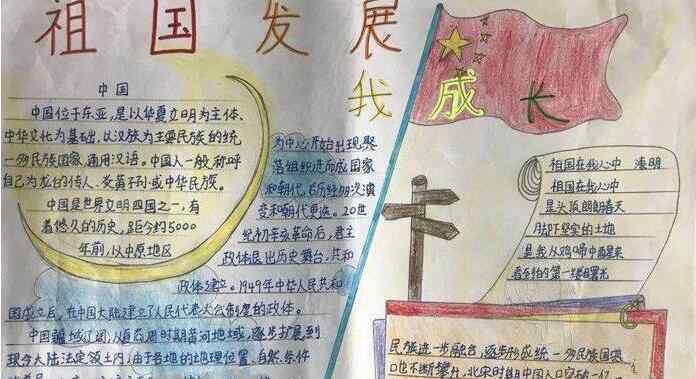 祖国发展
我成长
中国
中国位于东亚,是以华夏文明为主体、
中华文化为基础,以汉族为主要民族的统
一多民族国家,通用汉语。中国人一般称呼
自己为龙的传人、炎黄子孙或中华民族。
中国是世界文明四国之一,有
着悠久的历史,距今约5000
年前,以中原地区
为中心开始出现聚
落组织进而成国家
和朝代,后历经多次演
变和朝代更迭。20世
纪初辛亥革命后,君主
政体退出历史舞台,共和
政体建立。1949年中华人民共和
国成立后,在中国大陆建立了人民代表大会制度的政体。
中国疆域辽阔,从
时期黄河地域,逐步扩展到
现今大陆法定领土内,由于各地的地理位置、自然条件
祖国在我心中
祖国在我心中
是头顶朗朗春天
脚下坚实的土地
是我从鸡啼中醒来
看到的第一缕曙光
民族进一步融合,逐步形成统一多民族国家
口也不断攀升,北宋时期中国人口突破一亿